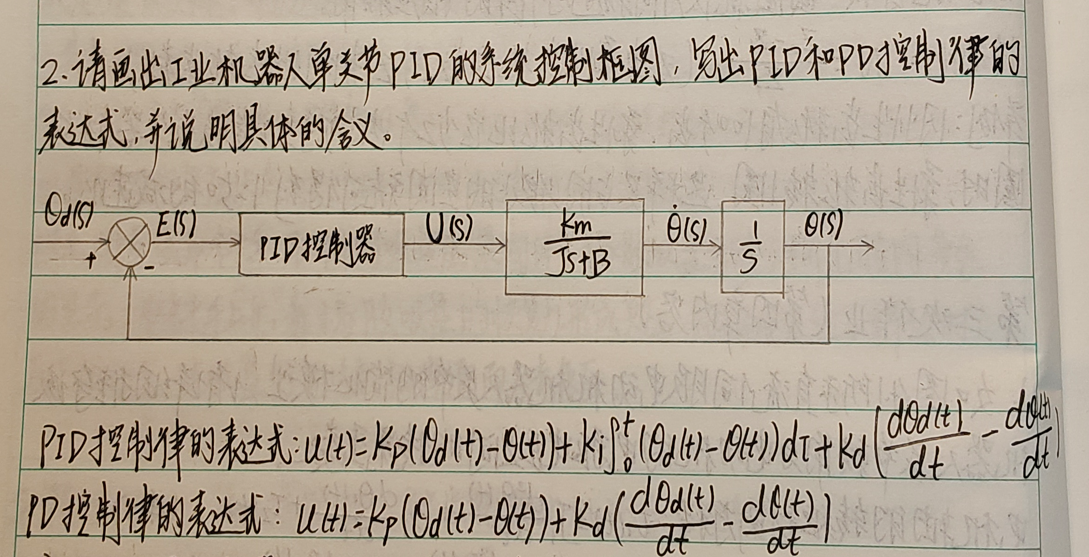 2.请画出工业机器人单关节PID的系统控制框图，写出PID和PD控制律的
表达式，并说明具体的含义。
θd(s) + - E(s) PID控制器 U(s) Km/(Js+B) θ̇(s) 1/S θ(s)
PID控制律的表达式：u(t)=Kp(θd(t)-θ(t))+Ki∫₀ᵗ(θd(t)-θ(t))dτ+Kd(dθd(t)/dt-dθ(t)/dt)
PD控制律的表达式：u(t)=Kp(θd(t)-θ(t))+Kd(dθd(t)/dt-dθ(t)/dt)